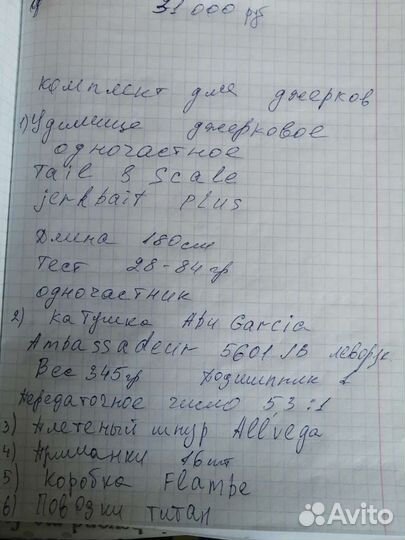 31 000 руб
комплект для джерков
1) Удилище джерковое
одночастное
Tail & Scale
jerkbait plus
Длина 180см
Тест 28-84гр
одночастник
2) катушка Abu Garcia
Ambassadeur 5601 JB леворук
Вес 345гр Подшипник 2
Передаточное число 5,3:1
3) Плетеный шнур Allvega
4) Приманки 16 шт
5) Коробка Flampe
6) Поводки титан
Avito